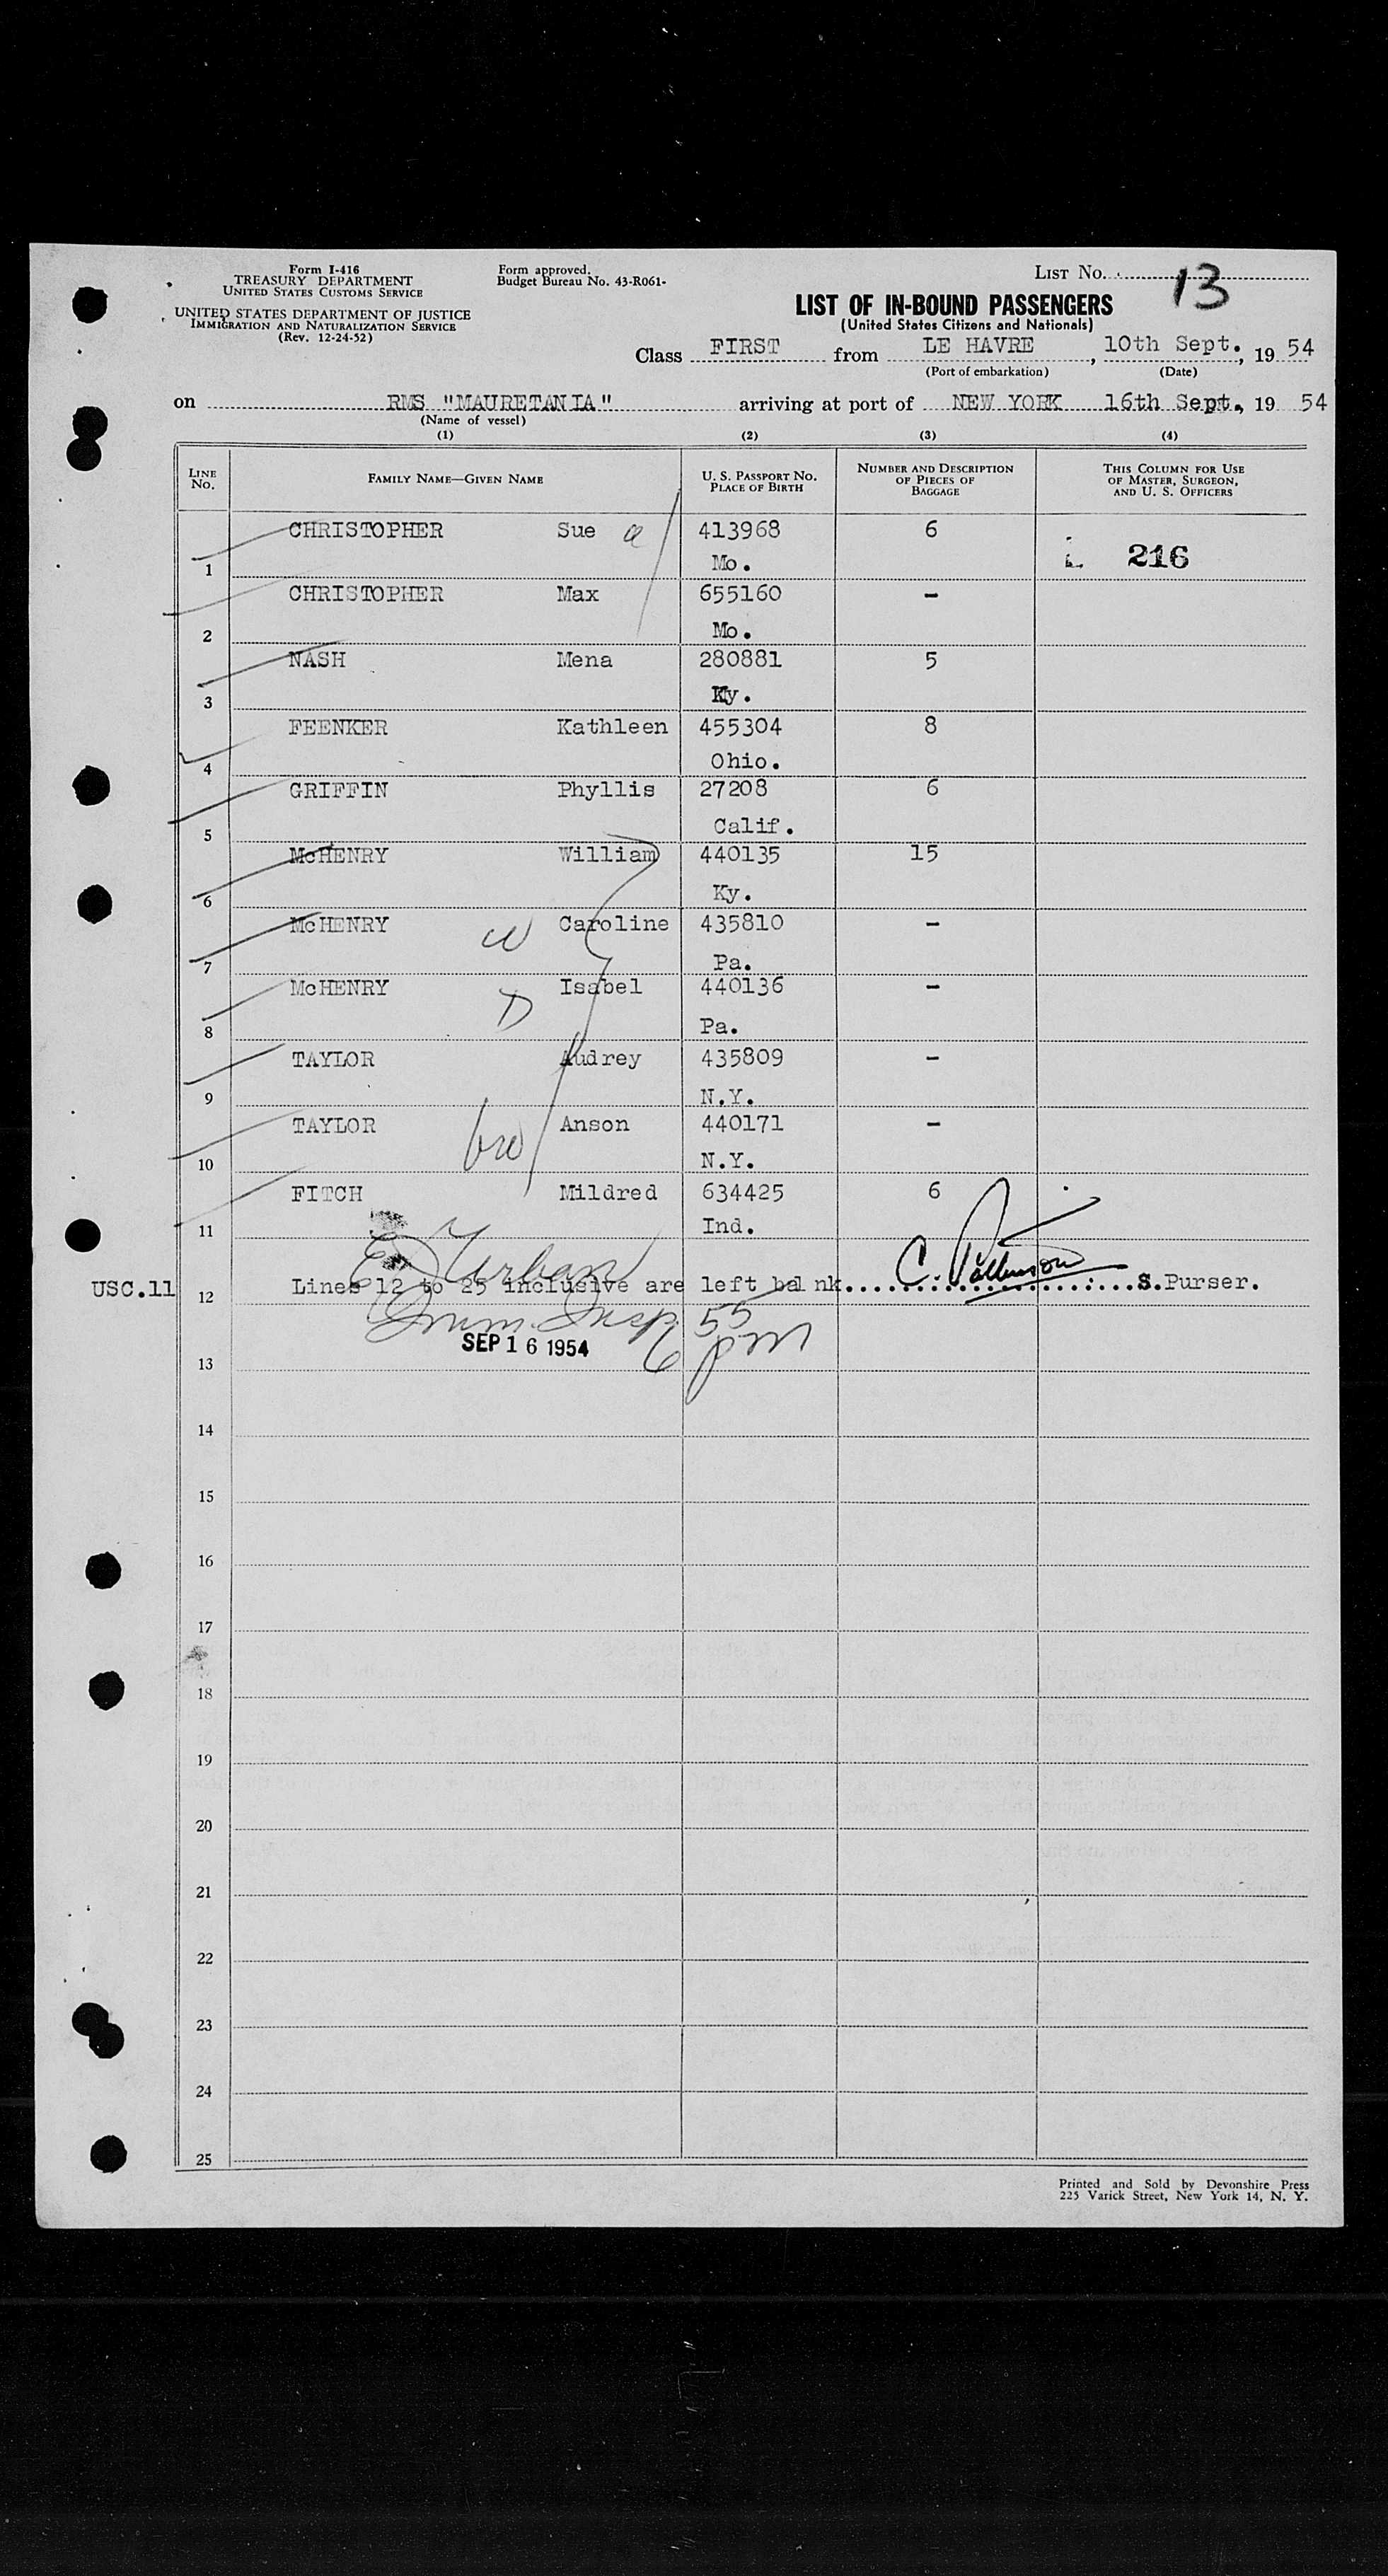 Form I-416
TREASURY DEPARTMENT
UNITED STATES CUSTOMS SERVICE
UNITED STATES DEPARTMENT OF JUSTICE
IMMIGRATION AND NATURALIZATION SERVICE
(Rev. 12-24-52)
Form approved.
Budget Bureau No. 43-R061-
LIST NO. 13
LIST OF IN-BOUND PASSENGERS
(United States Citizens and Nationals)
Class FIRST from LE HAVRE, 10th Sept., 19 54
(Port of embarkation) (Date)
on RMS "MAURETANIA" arriving at port of NEW YORK 16th Sept., 19 54
(Name of vessel)
(1) (2) (3) (4)
LINE NO. FAMILY NAME—GIVEN NAME U. S. PASSPORT NO. PLACE OF BIRTH NUMBER AND DESCRIPTION OF PIECES OF BAGGAGE THIS COLUMN FOR USE OF MASTER, SURGEON, AND U. S. OFFICERS
CHRISTOPHER Sue 413968 6
1 Mo. 216
CHRISTOPHER Max 655160 -
2 Mo.
NASH Mena 280881 5
3 Ky.
FEENKER Kathleen 455304 8
4 Ohio.
GRIFFIN Phyllis 27208 6
5 Calif.
McHENRY William 440135 15
6 Ky.
McHENRY W Caroline 435810 -
7 Pa.
McHENRY D Isabel 440136 -
8 Pa.
TAYLOR Audrey 435809 -
9 N.Y.
TAYLOR Anson 440171 -
10 N.Y.
FITCH Mildred 634425 6
11 Ind.
E Urban
USC.11 12 Lines 12 to 25 inclusive are left balnk. C. S.Purser.
Imm. Insp. 55
SEP 16 1954 6 pm
13
14
15
16
17
18
19
20
21
22
23
24
25
Printed and Sold by Devonshire Press
225 Varick Street, New York 14, N. Y.